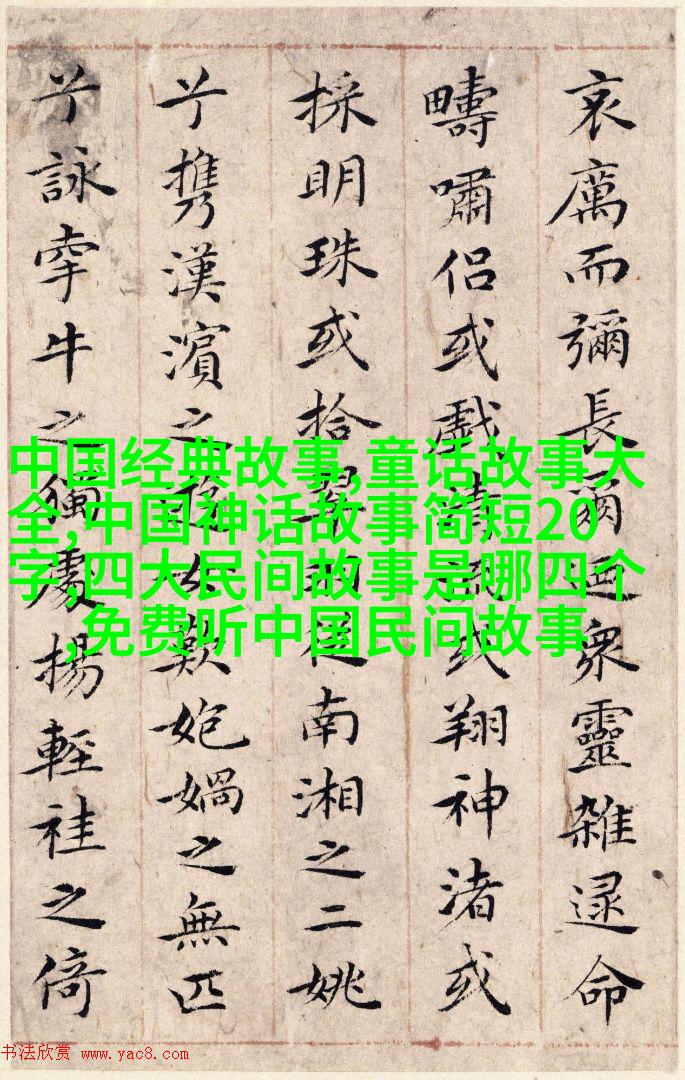 哀厲而彌長爾迺衆靈雜遝命
疇嘯侶或戲清流或翔神渚或
採明珠或拾翠羽從南湘之二姚
兮携漢濱之遊女歎㚿媧之無匹
兮詠牽牛之獨處揚輕袿之倚
中国经典故事,童话故事大
全,中国神话故事简短20
字,四大民间故事是哪四个
,免费听中国民间故事
书法欣赏 www.yac8.com